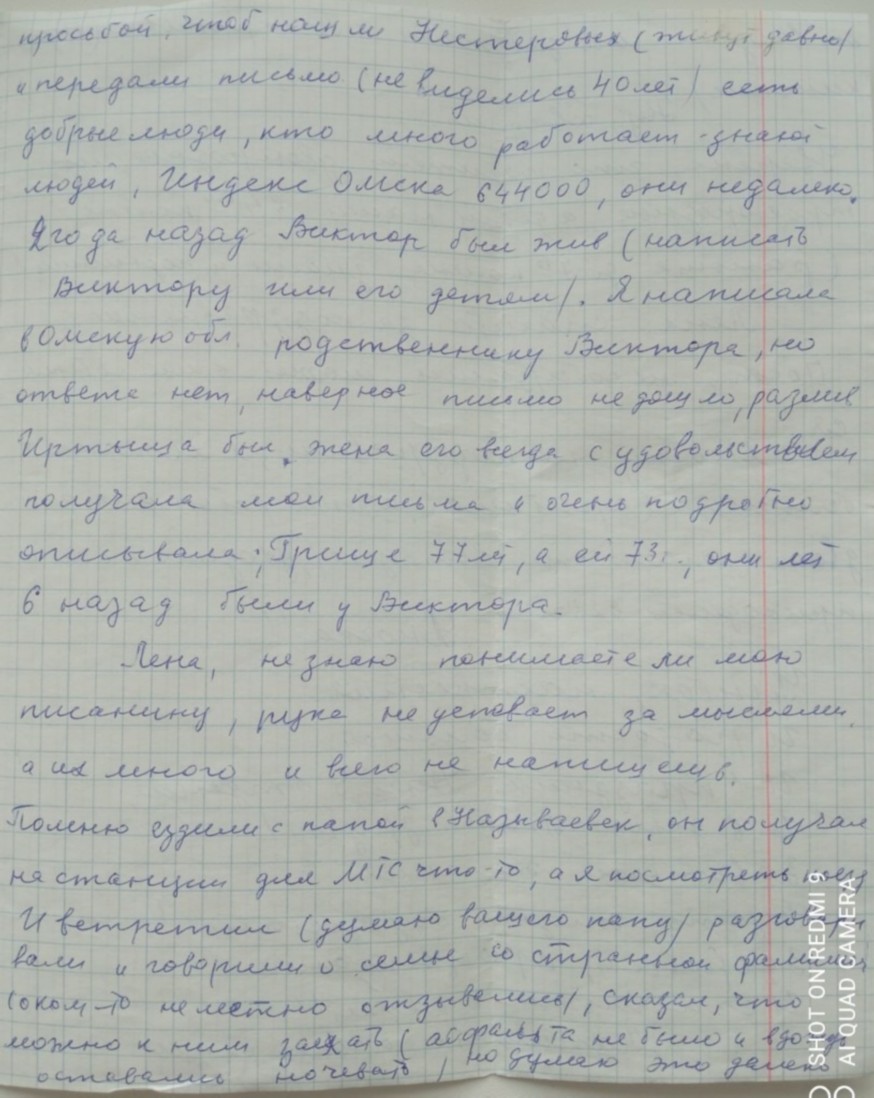 просьбой, чтоб нашли Нестеровых (живут давно)
и передали письмо (не виделись 40 лет) есть
добрые люди, кто много работает - знают
людей, Индекс Омска 644000, они недалеко.
2 года назад Виктор был жив (написать
Виктору или его детям). Я написала
в Омскую обл. родственнику Виктора, но
ответа нет, наверное письмо не дошло, разлив
Иртыша был. жена его всегда с удовольствием
получала мои письма и очень подробно
описывала; Грише 77 лет, а ей 73г., они лет
6 назад были у Виктора.
Лена, не знаю понимаете ли мою
писанину, рука не успевает за мыслями,
а их много и всего не напишешь.
Помню ездили с папой в Называевск, он получал
на станции для МТС что-то, а я посмотреть поезд
И встретили (думаю вашего папу) разговари
вали и говорили о семье со странной фамилией
(о ком-то не лестно отзывались), сказал, что
можно к ним заехать (асфальта не было и в дождь
оставались ночевать, но думаю это далеко
SHOT ON REDMI 9
AI QUAD CAMERA